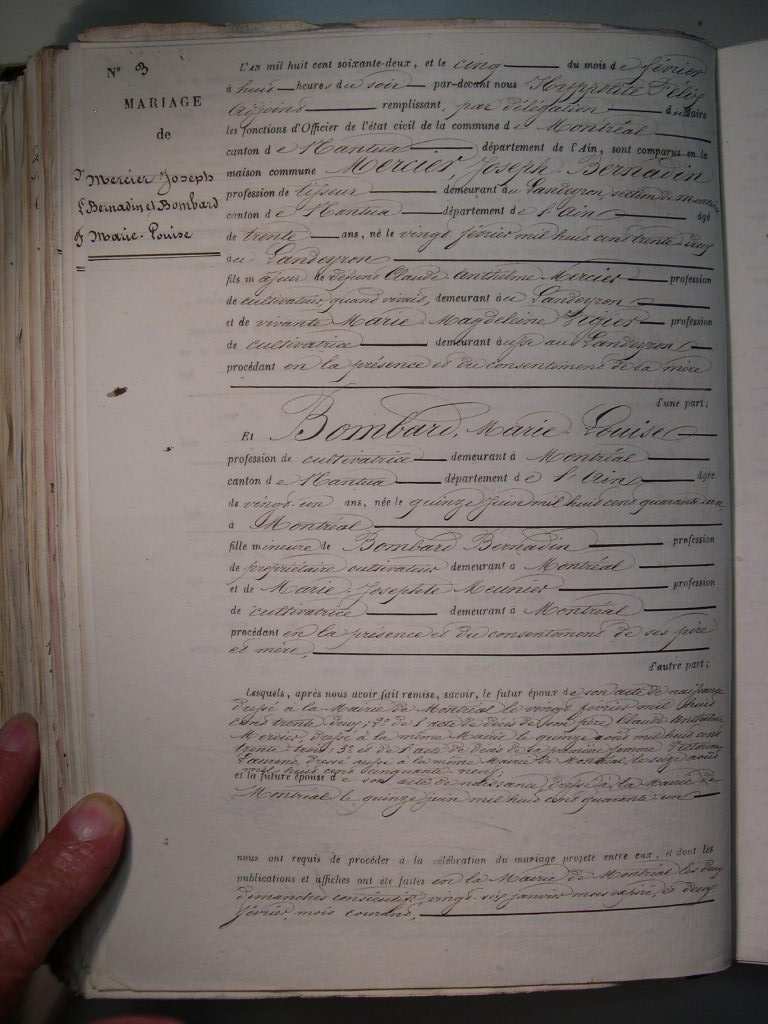 N° 3
MARIAGE
de
Mercier Joseph
Bernadin et Bombard
Marie-Louise
L'AN mil huit cent soixante-deux, et le cinq du mois de février
à huit heures du soir par-devant nous Hyppolite Félix
adjoint remplissant, par délégation du Maire
les fonctions d'Officier de l'état civil de la commune de Montréal
canton de Nantua, département de l'Ain, sont comparus en la
maison commune Mercier, Joseph-Bernadin
profession de tisseur demeurant au Landeyron section de Montréal
canton de Nantua département de l'Ain âgé
de trente ans, né le vingt février mil huit cent trente-deux
au Landeyron
fils majeur de défunt Claude Anthelme Mercier profession
de cultivateur quand vivait, demeurant au Landeyron
et de vivante Marie Magdeleine profession
de cultivatrice demeurant aussi au Landeyron
procédant en la présence et du consentement de sa mère
d'une part;
Et Bombard, Marie-Louise
profession de cultivatrice demeurant à Montréal
canton de Nantua département de l'Ain âgée
de vingt-un ans, née le quinze juin mil huit cent quarante-un
à Montréal
fille mineure de Bombard Bernadin profession
de propriétaire cultivateur demeurant à Montréal
et de Marie-Josephte Meunier profession
de cultivatrice demeurant à Montréal
procédant en la présence et du consentement de ses père
et mère,
d'autre part;
Lesquels, après nous avoir fait remise, savoir, le futur époux de son acte de naissance
dressé à la Mairie de Montréal le vingt février mil huit
cent trente-deux; 2° de l'acte de décès de son père Claude Anthelme
Mercier, dressé à la même Mairie le quinze août mil huit cent
trente-trois; 3° et de l'acte de décès de sa première femme
dressé aussi à la même Mairie de Montréal le seize août
mil huit cent cinquante-neuf;
et la future épouse de son acte de naissance, dressé à la Mairie de
Montréal le quinze juin mil huit cent quarante-un
nous ont requis de procéder à la célébration du mariage projeté entre eux, et dont les
publications et affiches ont été faites en la Mairie de Montréal les deux
dimanches consécutifs, vingt-six janvier mois expiré, & deux
février, mois courant,